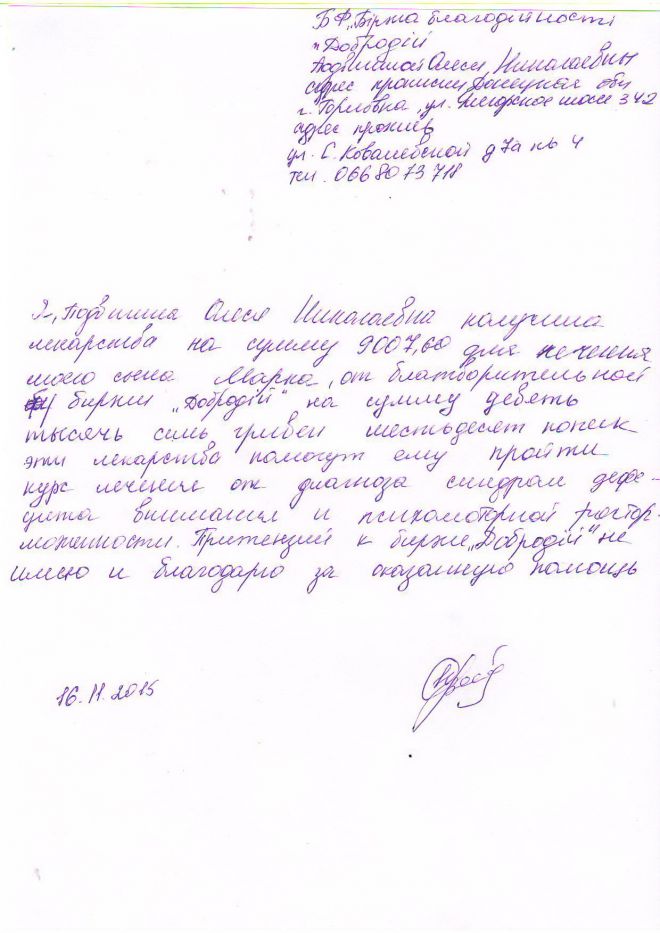 БФ „Біржа благодійності
"Добродій
Подвишной Олеси Николаевны
адрес прописки Донецкая обл
г. Горловка, ул. шоссе 342
адрес прожив
ул. С. Ковалевской д 7а кв 4
тел. 0668073718
Я, Подвишна Олеся Николаевна получила
лекарства на сумму 9007,60 для лечения
моего сына Марка, от благтворительной
биржи „Добродій" на сумму девять
тысячь семь гривен шестьдесят копеек
эти лекарства помогут ему пройти
курс лечения от диагноза синдром дефе-
цита внимания и психомоторной растор-
моженности. Притензий к биржи „Добродій" не
имею и благодарю за оказанную помощь
16.11.2015